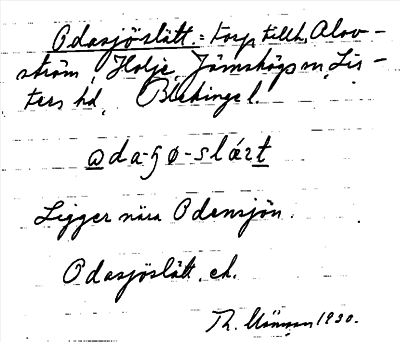 Odasjöslätt. = torp tillh. Alov-
ström, Holje, Jämshögs sn, Lis-
ters hd, Blekinge l.
ɷda-ʒø-slǽɪt
Ligger nära Odensjön.
Odasjöslätt. ek.
Th. 1930.